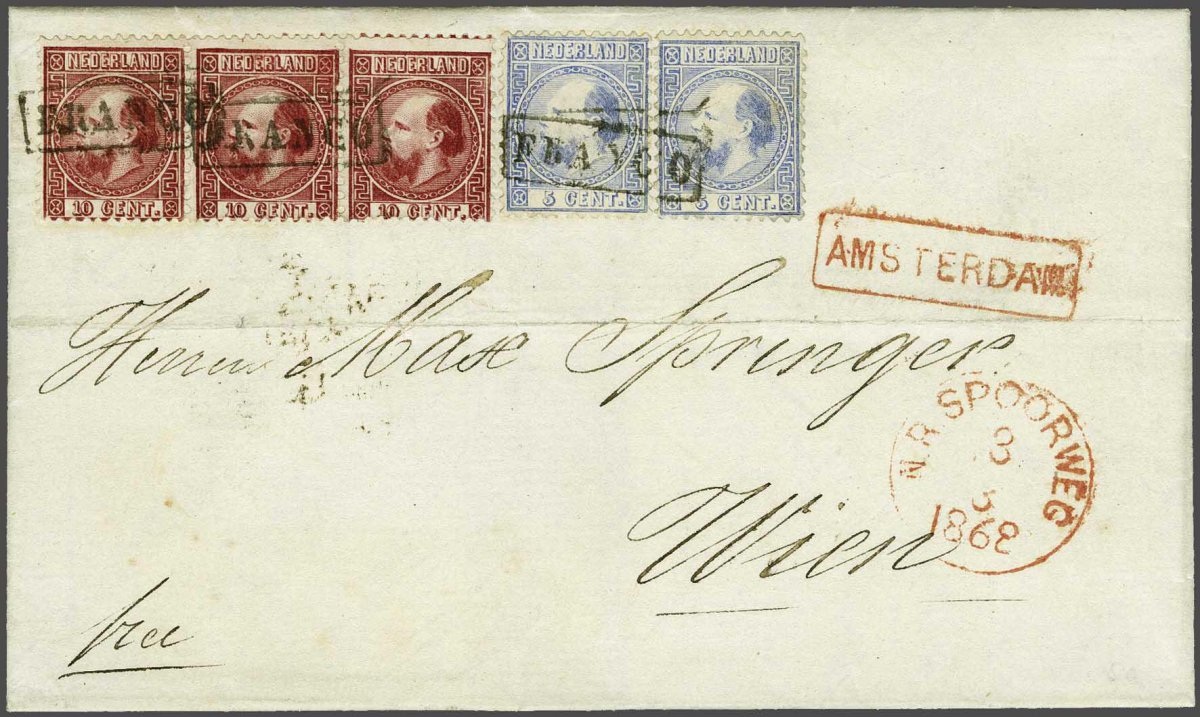 NEDERLAND NEDERLAND NEDERLAND NEDERLAND NEDERLAND
FRANCO FRANCO FRANCO
10 CENT. 10 CENT. 10 CENT. 5 CENT. 5 CENT.
AMSTERDAM
Herrn Max Springer
N.R SPOORWEG
8
1868
Wien